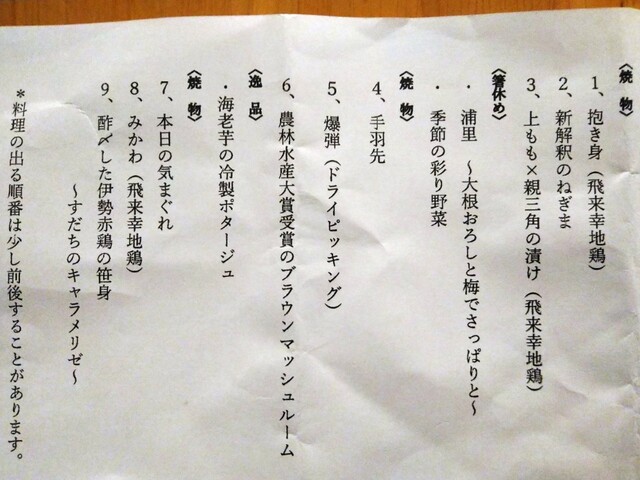 〈焼 物〉
1、抱き身(飛来幸地鶏)
2、新解釈のねぎま
3、上もも×親三角の漬け(飛来幸地鶏)
〈箸休め〉
・浦里 ~大根おろしと梅でさっぱりと~
・季節の彩り野菜
〈焼 物〉
4、手羽先
5、爆弾(ドライピッキング)
6、農林水産大賞受賞のブラウンマッシュルーム
〈逸 品〉
・海老芋の冷製ポタージュ
〈焼 物〉
7、本日の気まぐれ
8、みかわ(飛来幸地鶏)
9、酢〆した伊勢赤鶏の笹身
~すだちのキャラメリゼ~
*料理の出る順番は少し前後することがあります。